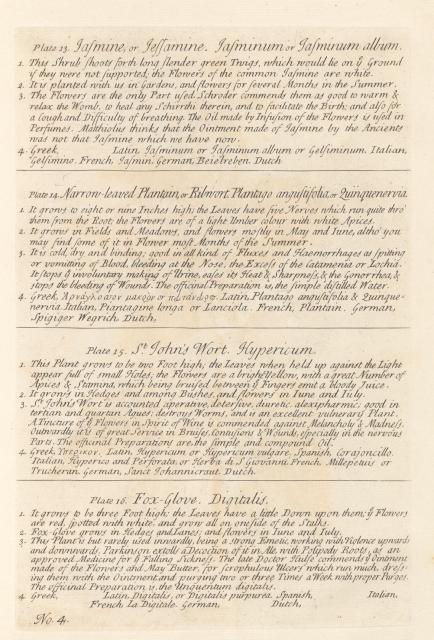 Plate 13. Jasmine, or Jessamine. Jasminum, or Jasminum album.
1. This Shrub shoots forth long slender green Twigs, which would lie on ye Ground
if they were not supported; the Flowers of the common Jasmine are white.
2. It is planted with us in Gardens, and flowers for several Months in the Summer.
3. The Flowers are the only Part used. Schroder commends them as good to warm &
relax the Womb, to heal any Schirrhi therein, and to facilitate the Birth; and also for
a Cough and Difficulty of breathing. The Oil made by Infusion of the Flowers is used in
Perfumes. Matthiolus thinks that the Ointment made of Jasmine by the Ancients
was not that Jasmine which we have now.
4. Greek, Latin, Jasminum or Jasminum album or Gelsiminum. Italian,
Gelsimino. French, Jasmin. German, Beielreben. Dutch
Plate 14. Narrow-leaved Plantain, or Ribwort. Plantago angustifolia, or Quinquenervia.
1. It grows to eight or nine Inches high; the Leaves have five Nerves which run quite thro'
them from the Root; the Flowers are of a light Umber colour with white Apices.
2. It grows in Fields and Meadows, and flowers mostly in May and June, altho' you
may find some of it in Flower most Months of the Summer.
3. It is cold, dry and binding; good in all kind of Fluxes and Haemorrhages as spitting
or vomitting of Blood, bleeding at the Nose, the Excess of the Catamenia or Lochia.
It stops ye involuntary making of Urine, eases its Heat & Sharpness, & the Gonorrhea, &
stops the bleeding of Wounds. The officinal Preparation is, the simple distilled Water.
4. Greek, Latin, Plantago angustifolia & Quinque-
nervia. Italian, Piantagine longa or Lanciola. French, Plantain. German,
Spigiger Wegrich. Dutch,
Plate 15. St. John's Wort. Hypericum.
1. This Plant grows to be two Foot high; the Leaves when held up against the Light
appear full of small Holes; the Flowers are a bright Yellow, with a great Number of
Apices & Stamina, which being bruised between ye Fingers emit a bloody Juice.
2. It grows in Hedges and among Bushes, and flowers in June and July.
3. St. John's Wort is accounted aperative, detersive, diuretic, alexipharmic; good in
tertian and quartan Agues; destroys Worms, and is an excellent vulnerary Plant.
A Tincture of ye Flowers in Spirit of Wine is commended against Melancholy & Madness.
Outwardly it is of great Service in Bruises, Contusions & Wounds, especially in the nervous
Parts. The officinal Preparations are, the simple and compound Oil.
4. Greek, Latin, Hypericum or Hypericum vulgare. Spanish, Corajoncillo.
Italian, Hyperico and Perforata, or Herba di S. Giovanni. French, Millepetuis or
Trucheran. German, Sanct Johannicraut. Dutch,
Plate 16. Fox-Glove. Digitalis.
1. It grows to be three Foot high; the Leaves have a little Down upon them; ye Flowers
are red, spotted with white, and grow all on one side of the Stalks.
2. Fox-Glove grows in Hedges and Lanes; and flowers in June and July.
3. This Plant is but rarely used inwardly, being a strong Emetic, working with Violence upwards
and downwards. Parkinson extolls a Decoction of it in Ale, with Polipody Roots, as an
approved Medicine for ye Falling Sickness. The late Doctor Hulse commends ye Ointment
made of the Flowers and May Butter, for scrophulous Ulcers which run much, dress-
ing them with the Ointment, and purging two or three Times a Week with proper Purges.
The officinal Preparation is, the Unguentum digitalis.
4. Greek, Latin, Digitalis, or Digitalis purpurea. Spanish, Italian,
French, La Digitale. German, Dutch,
No. 4.